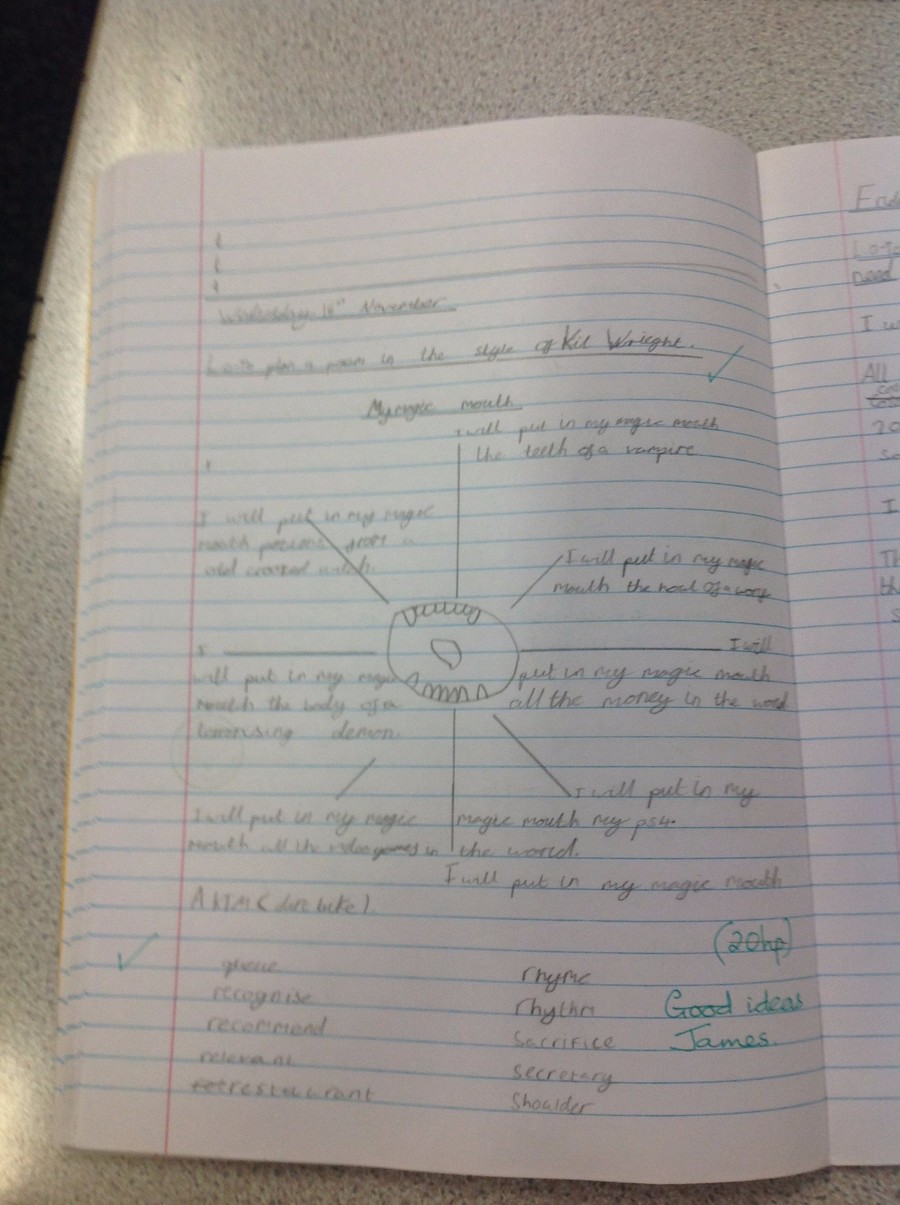 Wednesday 18th November
L.o-To plan a poem in the style of Kit Wright.
My magic mouth
I will put in my magic mouth
the teeth of a vampire
I will put in my magic
mouth potions from a
old crooked witch.
I will put in my magic
mouth the
I will
put in my magic mouth
all the money in the word
I
will put in my magic
mouth the body of a
demon.
I will put in my
magic mouth my ps4.
I will put in my magic
mouth all the video games in the world.
I will put in my magic mouth
A KTM (dirt bike).
(20hp)
Good ideas
James.
queue
recognise
recommend
relevant
restaurant
rhyme
rhythm
sacrifice
secretary
Shoulder
I
All
20
I